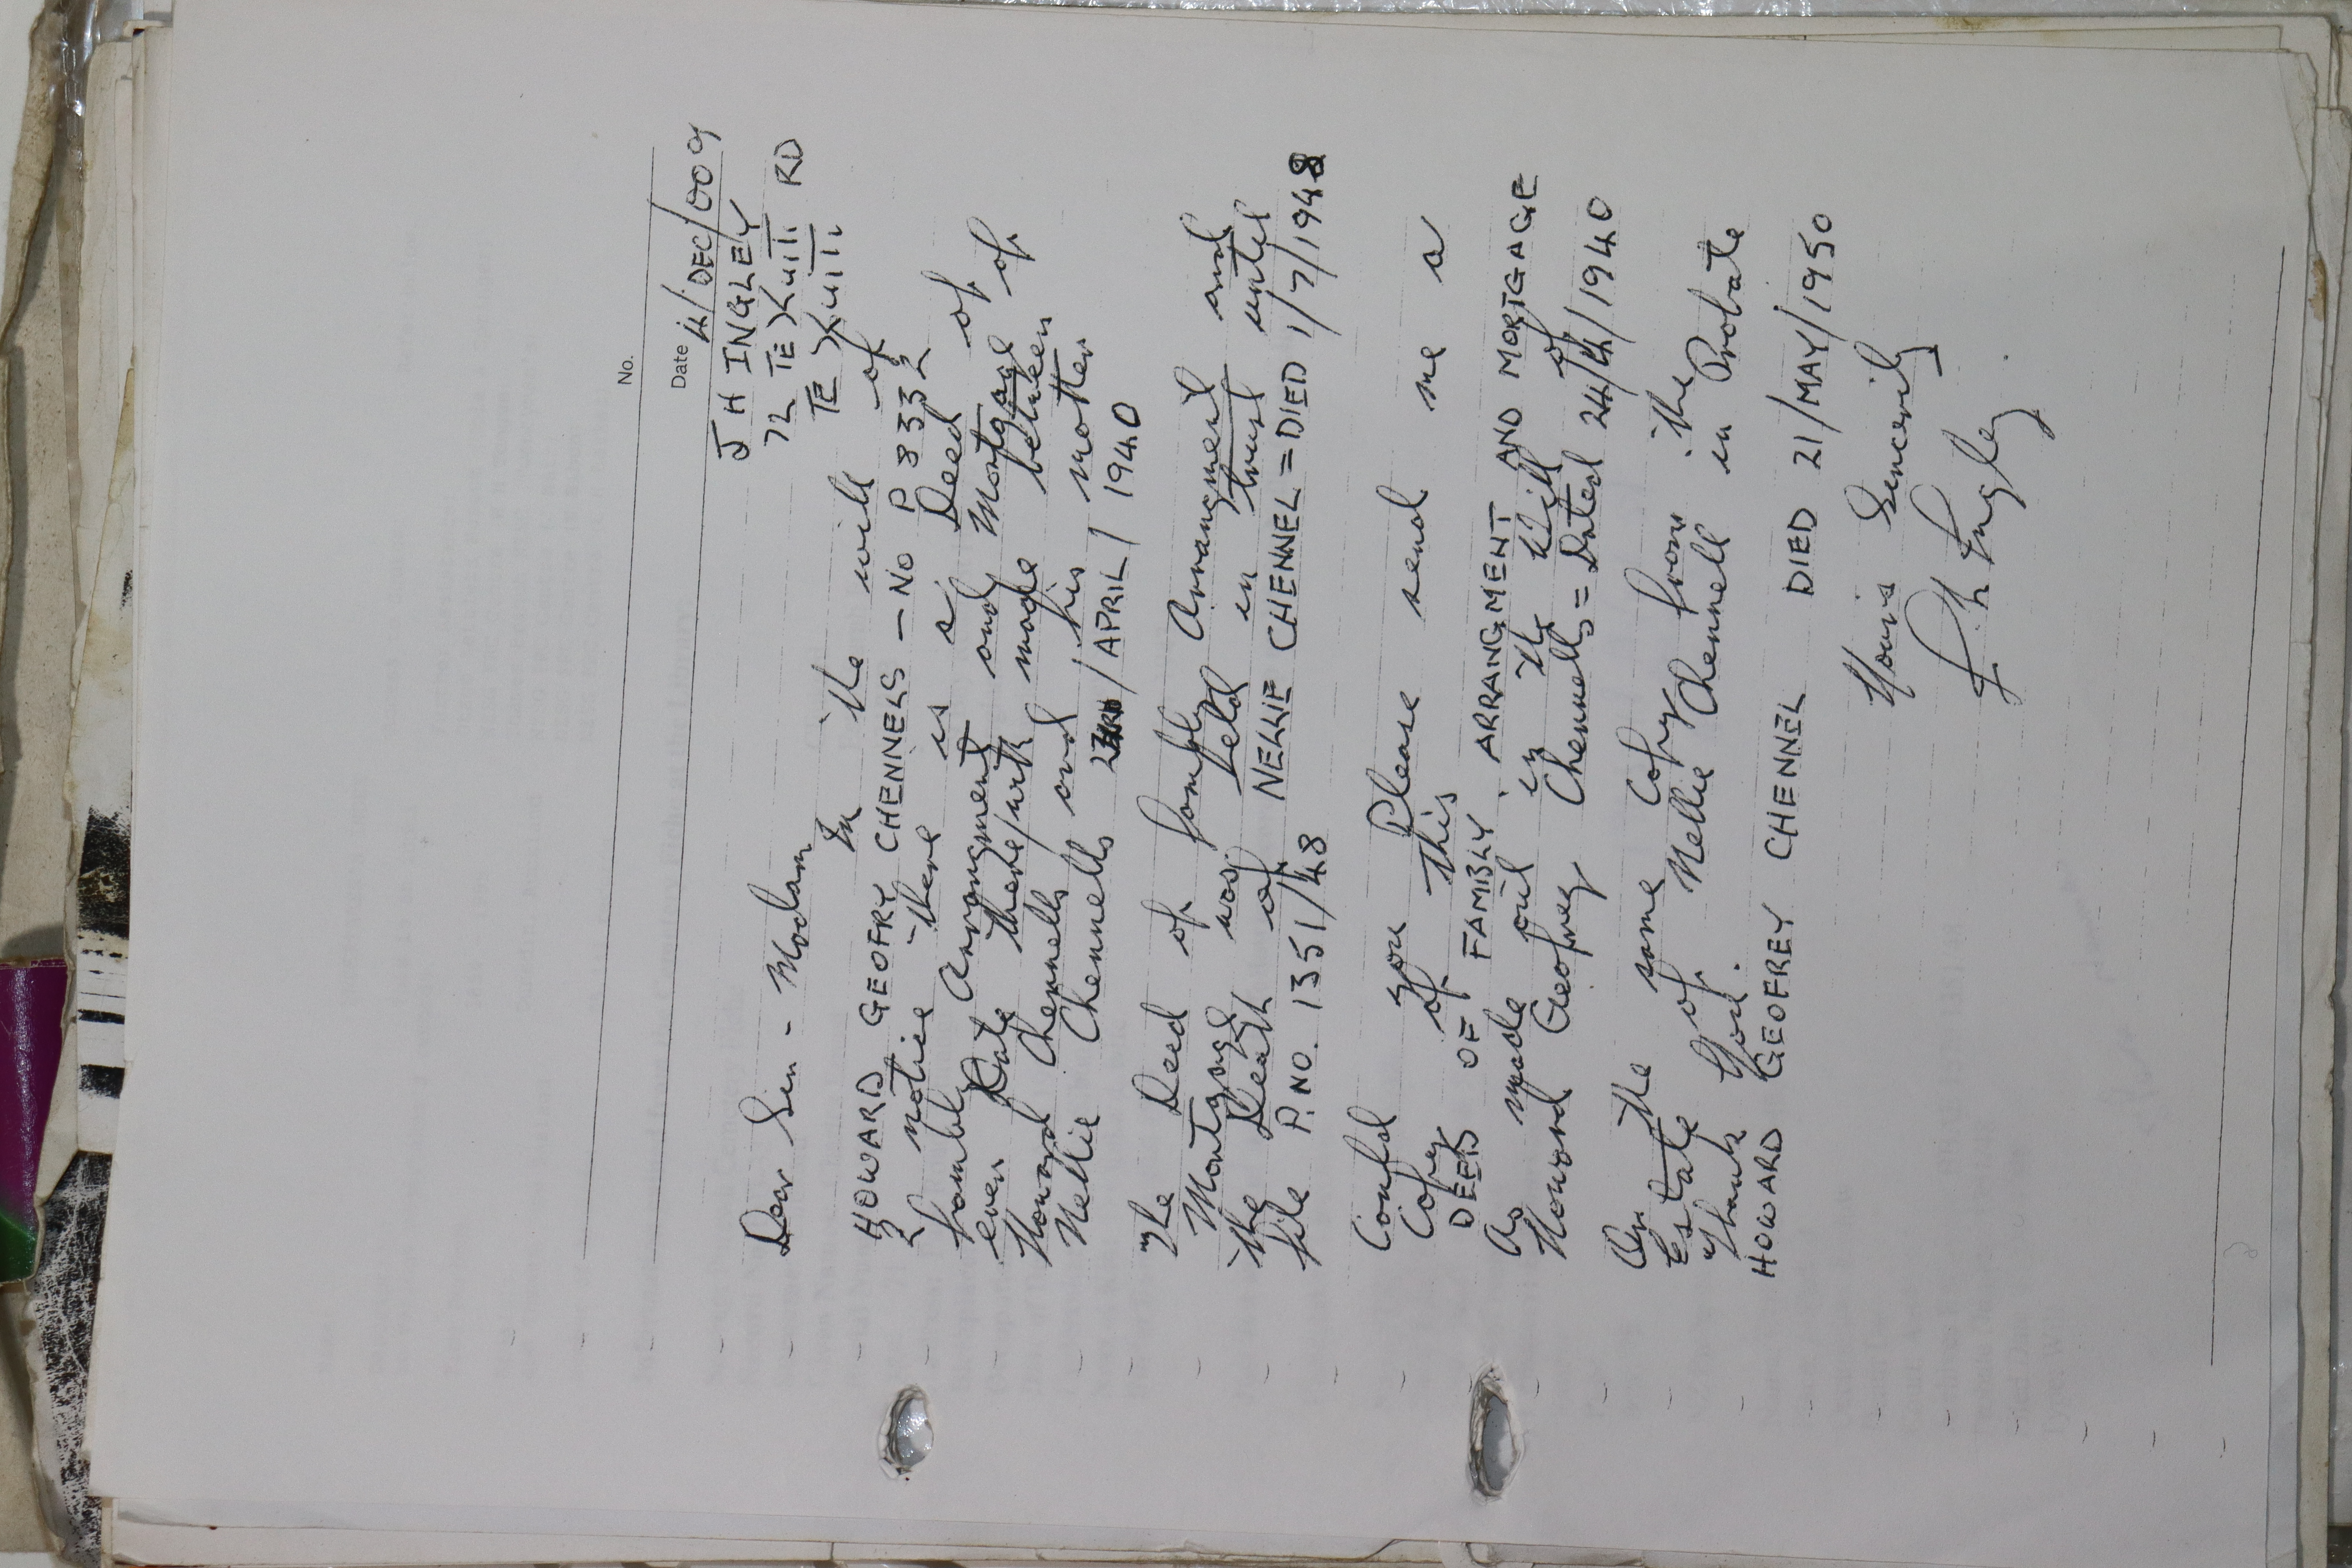 No.
Date 14/DEC/009
J H INGLEY
72 TE RD
TE
Dear Sir - Madam
In the will of
HOWARD GEOFRY CHENNELS - NO P 8332
I notice there is a Deed of
Fambly Arrangment and Mortgage of
even Date there/with made between
Howard Chennells and his mother
Nellie Chennells 23RD/APRIL/1940
The Deed of fambly Arrangment and
Mortgage was held in trust until
the Death of NELLIE CHENNEL = DIED 1/7/1948
file P. NO. 1351/48
Could you Please send me a
Copy of this
DEED OF FAMBLY ARRANGMENT AND MORTGAGE
As made out in the Will of
Howard Geofrey Chennells = Dated 24/4/1940
Or the same Copy from the
Estate of Nellie Chennell in Probate
Thank You.
HOWARD GEOFREY CHENNEL DIED 21/MAY/1950
Yours Sincerily
J H Ingley